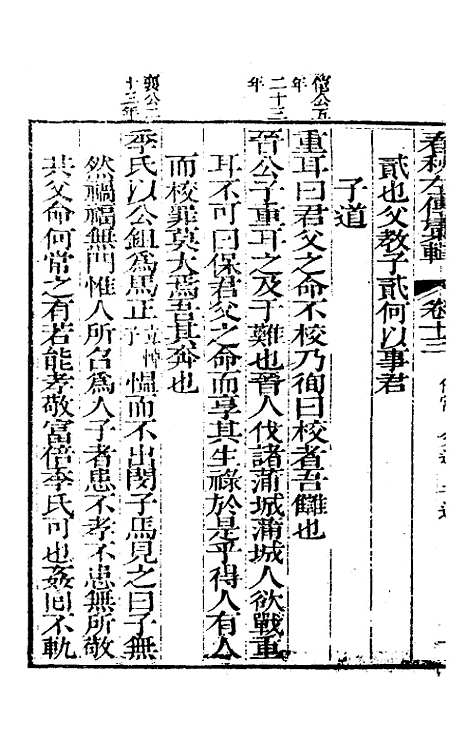 春秋左傳彙輯 卷十三
貳也父教子貳何以事君
子道
僖公五年
重耳曰君父之命不校乃徇曰校者吾讎也
二十三年
晉公子重耳之及于難也晉人伐諸蒲城蒲城人欲戰重
耳不可曰保君父之命而享其生祿於是乎得人有人
而校罪莫大焉吾其奔也
襄公二十三年
季氏以公鉏爲馬正 慍而不出閔子馬見之曰子無
然禍福無門惟人所召爲人子者患不孝不患無所敬
共父命何常之有若能孝敬富倍季氏可也姦回不軌